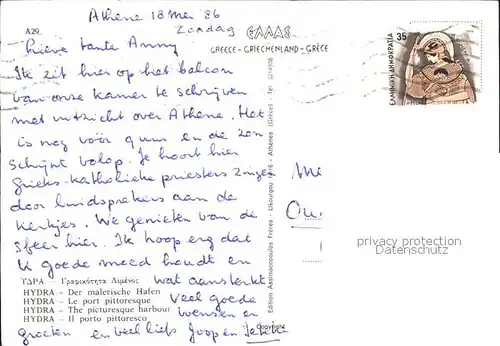 Athene 18 Mei 86
Zondag
A29.
Lieve tante Anny
ΕΛΛΑΣ
GREECE - GRIECHENLAND - GRÈCE
35
ΕΛΛΗΝΙΚΗ ΔΗΜΟΚΡΑΤΙΑ
Ik zit hier op het balcon
van onze kamer te schrijven
met uitzicht over Athene. Het
is nog vóór 9 uur en de zon
schijnt volop. Je hoort hier
Grieks-katholieke priesters zingen
door luidsprekers aan de
kerkjes. We genieten van de
sfeer hier. Ik hoop erg dat
U goede moed houdt en
wat aansterkt
Veel goede
wensen en
groeten en veel liefs Joop en
ΥΔΡΑ – Γραφικότητα Λιμένος
HYDRA – Der malerische Hafen
HYDRA – Le port pittoresque
HYDRA – The picturesque harbour
HYDRA – Il porto pittoresco
Edition Assimacopoulos Frères - Likourgou - Athènes (Grèce) - Tél.
Copyright
privacy protection
Datenschutz